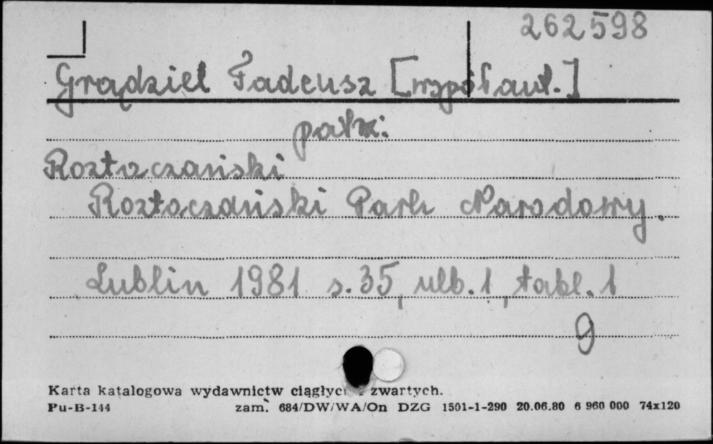 262598
Grądziel Tadeusz [współaut.]
patrz:
Roztoczański
Roztoczański Park Narodowy.
Lublin 1981 s. 35, nlb. 1, tabl. 1
9
Karta katalogowa wydawnictw ciągłych i zwartych.
Pu-B-144 zam. 684/DW/WA/On DZG 1501-1-290 20.06.80 6 960 000 74x120